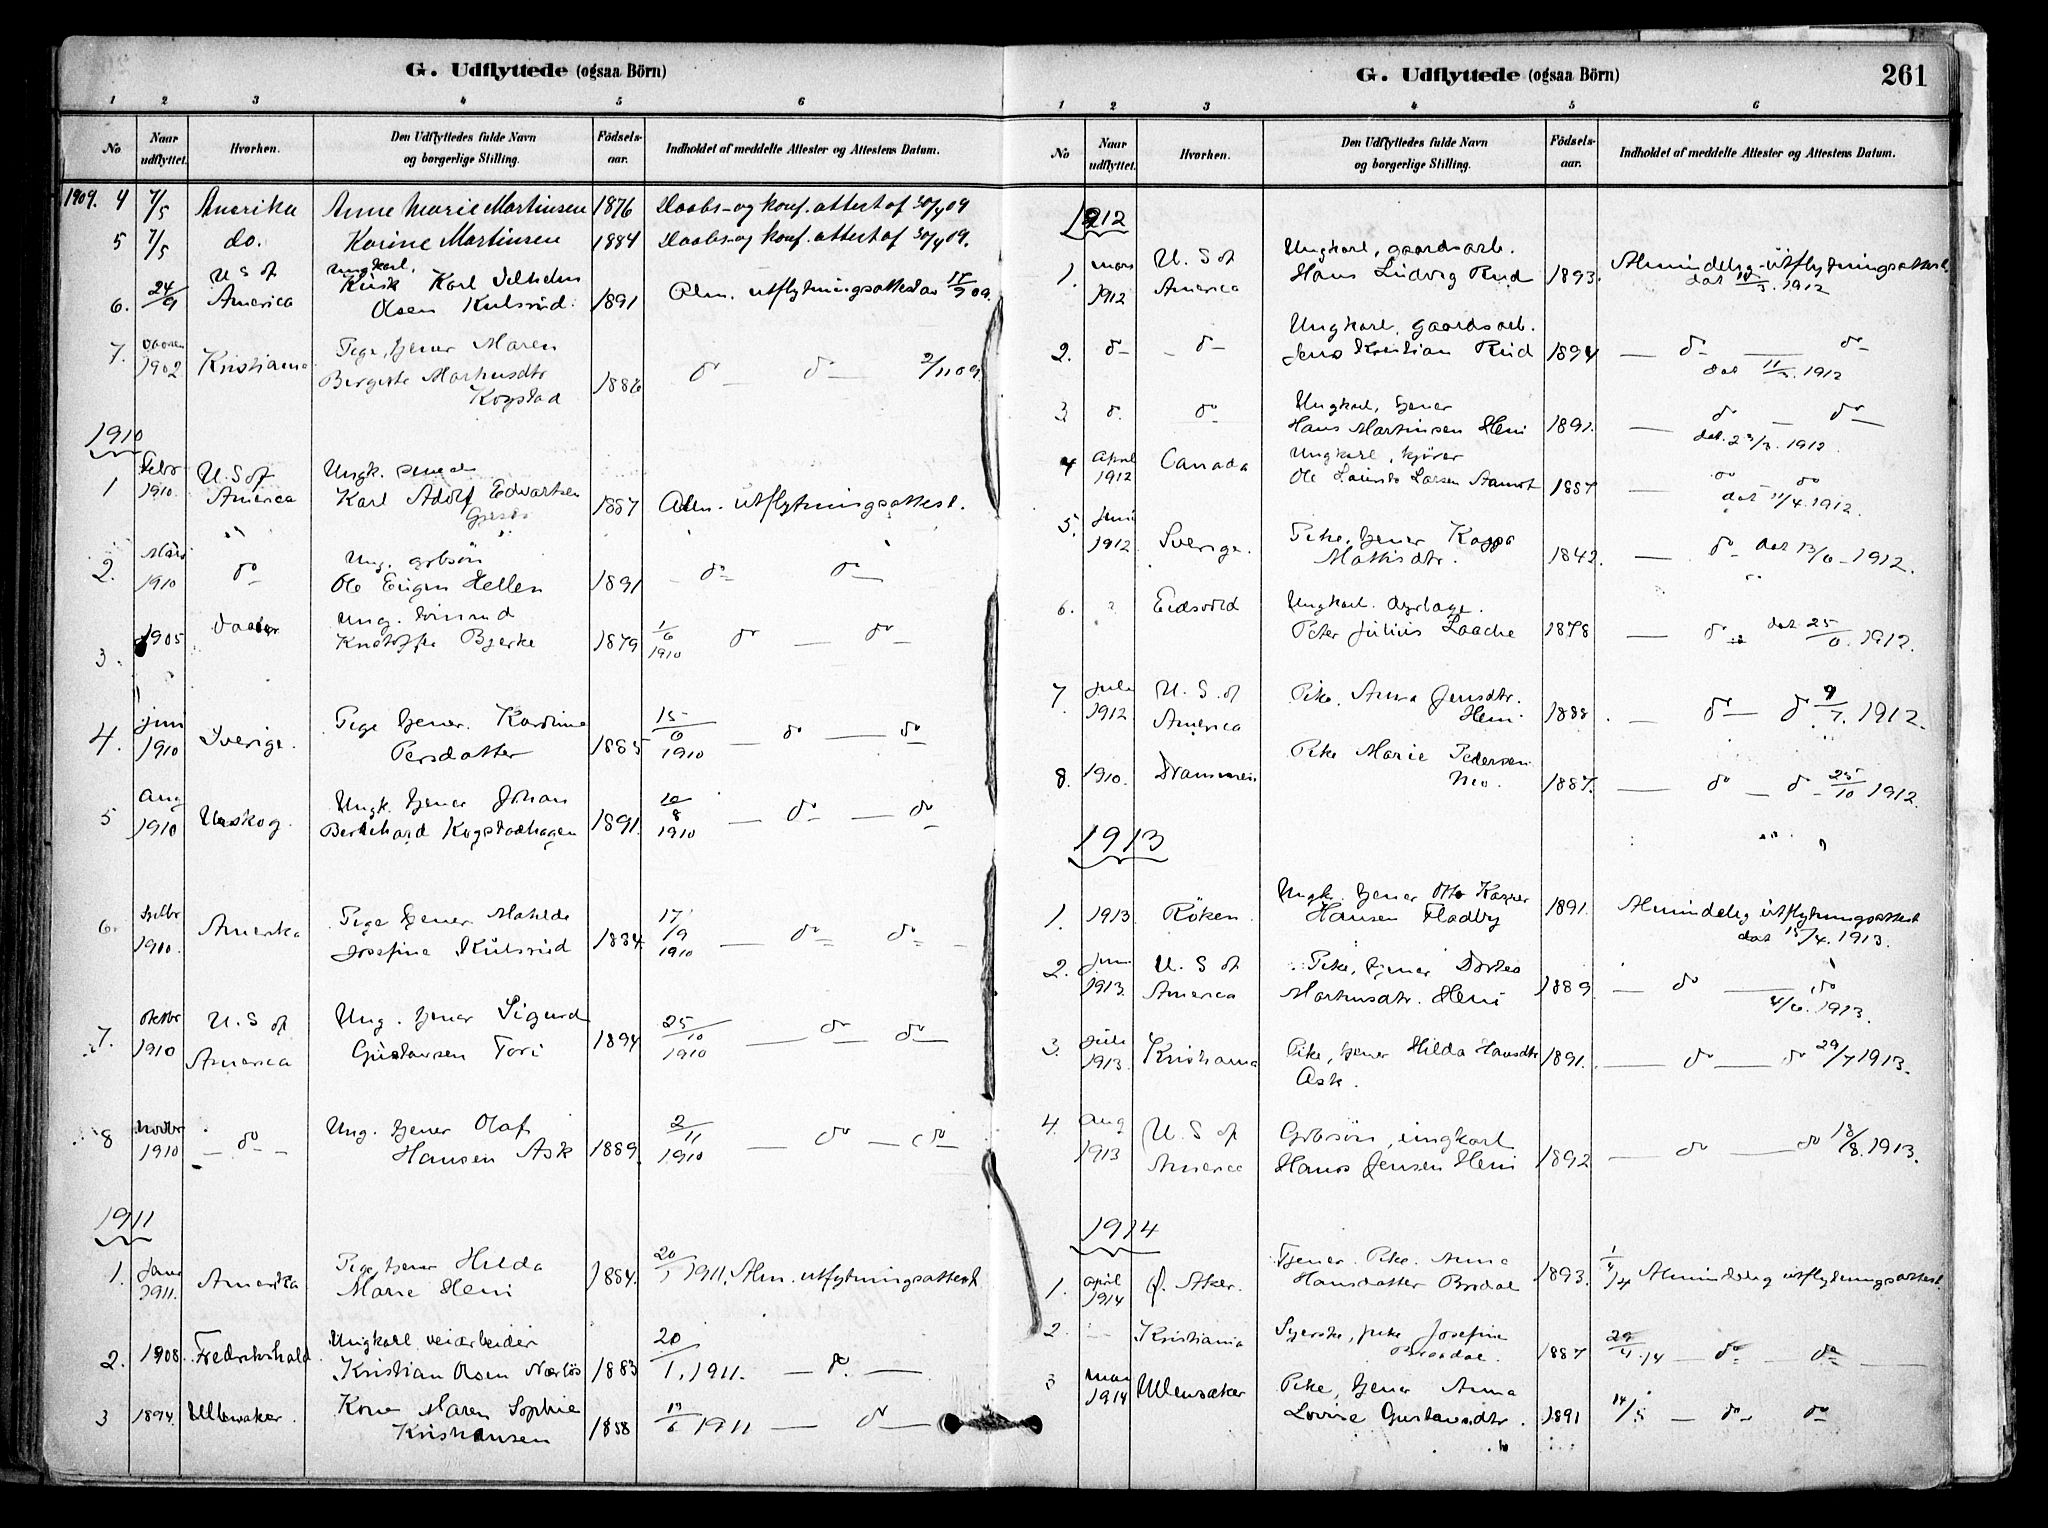 G. Udflyttede (ogsaa Börn)
1 2 3 4 5 6
No Naar udflyttet. Hvorhen. Den Udflyttedes fulde Navn og borgerlige Stilling. Födsels-aar. Indholdet af meddelte Attester og Attestens Datum.
1909. 4 7/5 Amerika Anne Marie Martinsen 1876 Daabs- og konf. attest af 30/4 09
5 7/5 do. Karine Martinsen 1884 Daabs- og konf. attest af 30/4 09.
U S of Ungkarl,
6. 24/9 America Karl Vilhelm
Olsen Kulsrud. 1891 Alm. utflytningsattest av 09.
7. 1902 Kristiania Pige, tjener Maren
Bergitte Marthusdtr
Kogstad 1886 do — do — 2/11 09.
1910
1 Febr 1910. U. S of America Ungk.
Karl Adolf Edvartsen 1887 Alm. utflytningsattest.
2. Mars 1910 do Ung. gbrsön
Ole Eugen Hellen 1891 — do — do —
3. 1905 Ung.
Kristoffer Bjerke 1879 1/6 1910 do — do —
4. Juni 1910 Sverige. Pige tjener. Karoline
Persdatter 1885 15/6 1910 — do — do
5 Aug 1910 Urskog. Ungk. tjener Johan
Bernhard Kogstadhagen 1891. 10/8 1910 — do — do
6. Septbr 1910. Amerika Pige tjener Matilde
Josefine Kulsrud 1884. 17/9 1910 — do — do —
7. Oktbr 1910 U. S of America Ung. tjener Sigurd
Gustavsen Tori 1894 25/10 1910 — do — do —
8 Novbr 1910 — do — Ung. tjener Olaf
Hansen Ask 1889. 2/11 1910 — do — do —
1911
1. Janr 1911. Amerika Pige, tjener Hilda
Marie Heni 1884. 20/1 1911, Alm. utflytningsattest
2. 1908. Fredrikshald Ungkarl veiarbeider
Kristian Olsen Nærlös 1883 20/1. 1911. — do. —
3 1894. Ullensaker. Kone Maren Sophie
Kristiansen 1858 13/6 1911 — do —
G. Udflyttede (ogsaa Börn) 261
1 2 3 4 5 6
No Naar udflyttet. Hvorhen. Den Udflyttedes fulde Navn og borgerlige Stilling. Födsels-aar. Indholdet af meddelte Attester og Attestens Datum.
1912
1. mars 1912 U. S of America Ungkarl, gaardsarb.
Hans Ludvig Rud 1893. Almindelig utflytningsattest
dat 1912
2. do — do — Ungkarl, gaardsarb.
Jens Kristian Rud 1894 — do — do —
dat 11/3. 1912
3 do. do Ungkarl, tjener
Hans Martinsen Heni 1891. — do — do —
dat. 23/3. 1912.
4 April 1912 Canada Ungkarl, kjörer
Ole Larsen 1887 — do do
dat 11/4. 1912.
5. Juni 1912 Sverige. Pike, tjener Kaisa
Mathisdtr. 1842. — do — dat 13/6 — 1912.
6. Eidsvold Ungkarl.
Peter Julius Laache 1878 — do — dat 25/6. 1912.
7 Juli 1912. U. S. of America Pike, Anna Jensdtr.
Heni 1888. — do — do 9/7. 1912.
8. 1910. Drammen Pike Marie Pedersen
Mo. 1887. — do — do 25/10 1912.
1913
1. 1913. Röken. Ungk. tjener Otto Kasper
Hansen Fladby 1891. Almindelig utflytningsattest
dat 15/4. 1913.
2. Juni 1913. U. S of America Pike, tjener Dortea
Marthusdtr. Heni 1889. — do — do
4/6. 1913.
3. Juli 1913. Kristiania Pike, tjener Hilda Hansdtr
Ask. 1891. — do — do 29/7 1913.
4. Aug 1913 U. S of America Gbrsön, ungkarl
Hans Jensen Heni 1892 — do — do 18/8. 1913.
1914
1. april 1914 Ø. Aker. Tjener. Pike. Anna
Hansdatter Brodal 1893. 1/4/14 Almindelig utflytningsattest.
2. — Kristiania Syerske, pike Josefine
1887 29/4. 14 — do — do —
3 mai 1914 Ullensaker Pike, tjener Anna
Lovise Gustavsdtr. 1891 14/5 — do — do